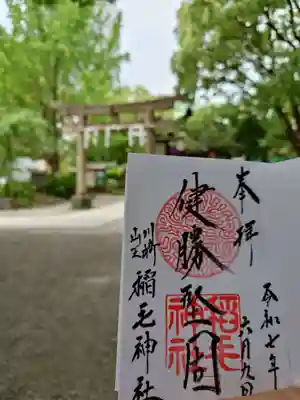 奉拝
令和七年
六月九日
健勝堅固
稲毛
神社
川崎
山王
稲毛神社